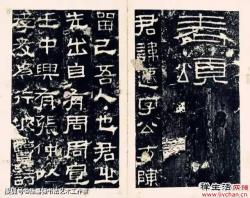 表頌
君諱遷字公方陳
留己吾人也君之
先出自有周周宣
王中興有張仲以
孝友為行披覽詩
生活网